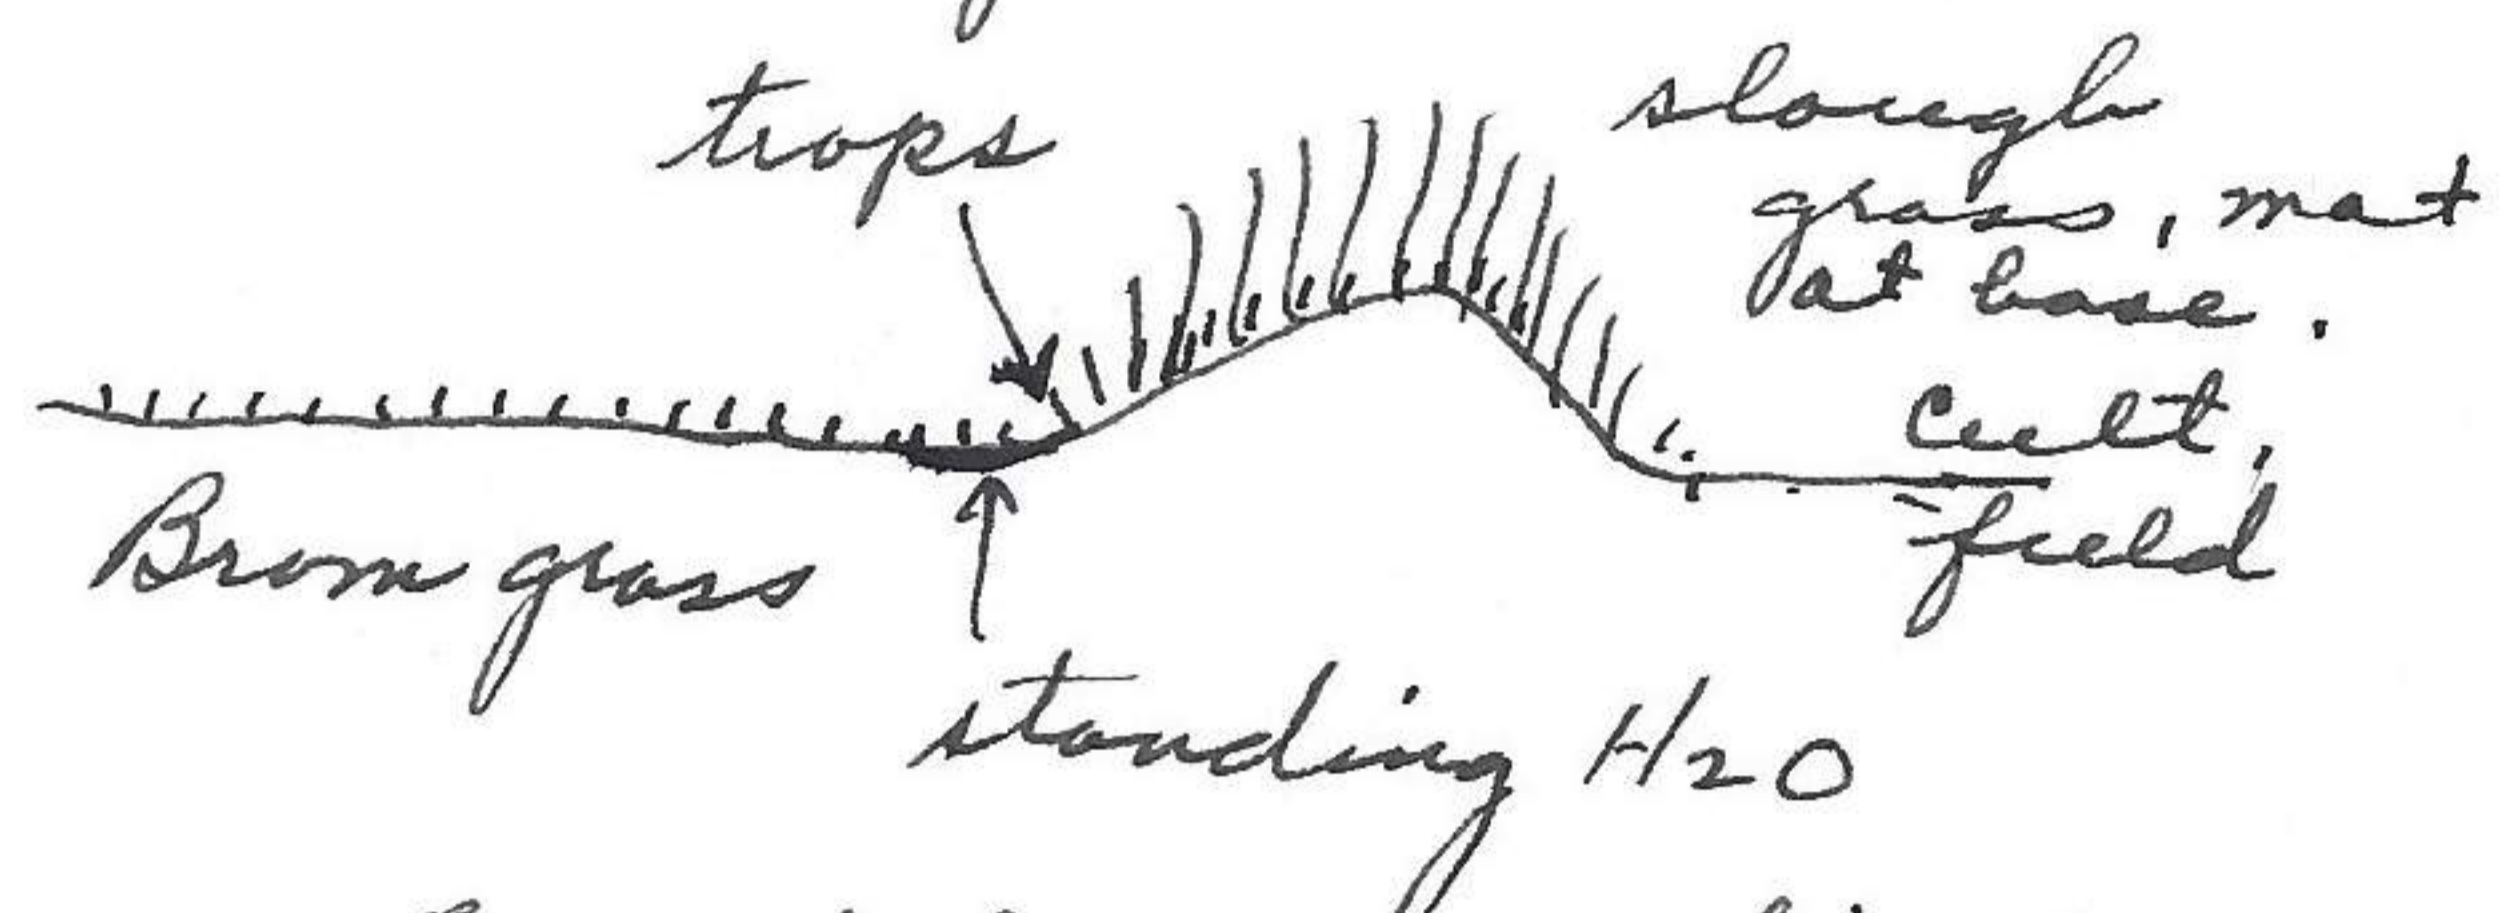 traps
slough
grass, mat
at base.
Cult,
field
Brom grass
standing H2O